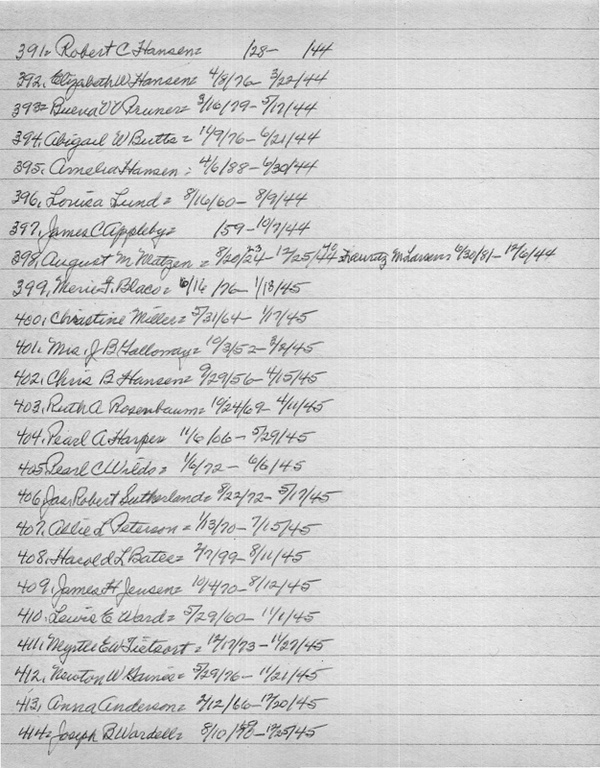 391= Robert C Hansen= /28- /44
392. Elizabeth W Hansen= 4/8/76- 3/22/44
393= Bueva VV Pruner= 3/16/79- 5/17/44
394. Abigail W Butts= 11/9/76- 6/21/44
395. Amelia Hansen= 4/6/88- 6/30/44
396. Lovisa Lund= 8/16/60- 8/9/44
397. James C Appleby= /59- 10/7/44
398. August M Matzen= 8/20/24- 12/25/44 M Larsens 6/30/81- 12/6/44
399. Blaco= 6/16/76- 1/18/45
400. Christine Miller= 5/21/64- 1/17/45
401. Mrs. J B Holloway= 10/3/52- 3/8/45
402. Chris B Hansen= 9/29/56- 4/15/45
403. Ruth A Rosenbaum= 10/24/69- 4/11/45
404. Pearl A Harper 11/6/06- 5/29/45
405 Pearl C Wilds= 1/6/72- 6/6/45
406 Jas. Robert Sutherland= 8/22/72- 5/17/45
407. Allie L Peterson= 1/13/70- 7/15/45
408. Harold L Batee= 2/7/99- 8/11/45
409. James H Jensen= 10/4/70- 8/12/45
410. Lewis E Ward= 5/29/60- 11/1/45
411. Myrtle EW Tietsort= 12/17/73- 11/27/45
412. Newton W Gaines= 3/29/76- 11/21/45
413. Anna Anderson= 2/12/66- 12/20/45
414= Joseph B Wardell= 8/10/ - 12/25/45